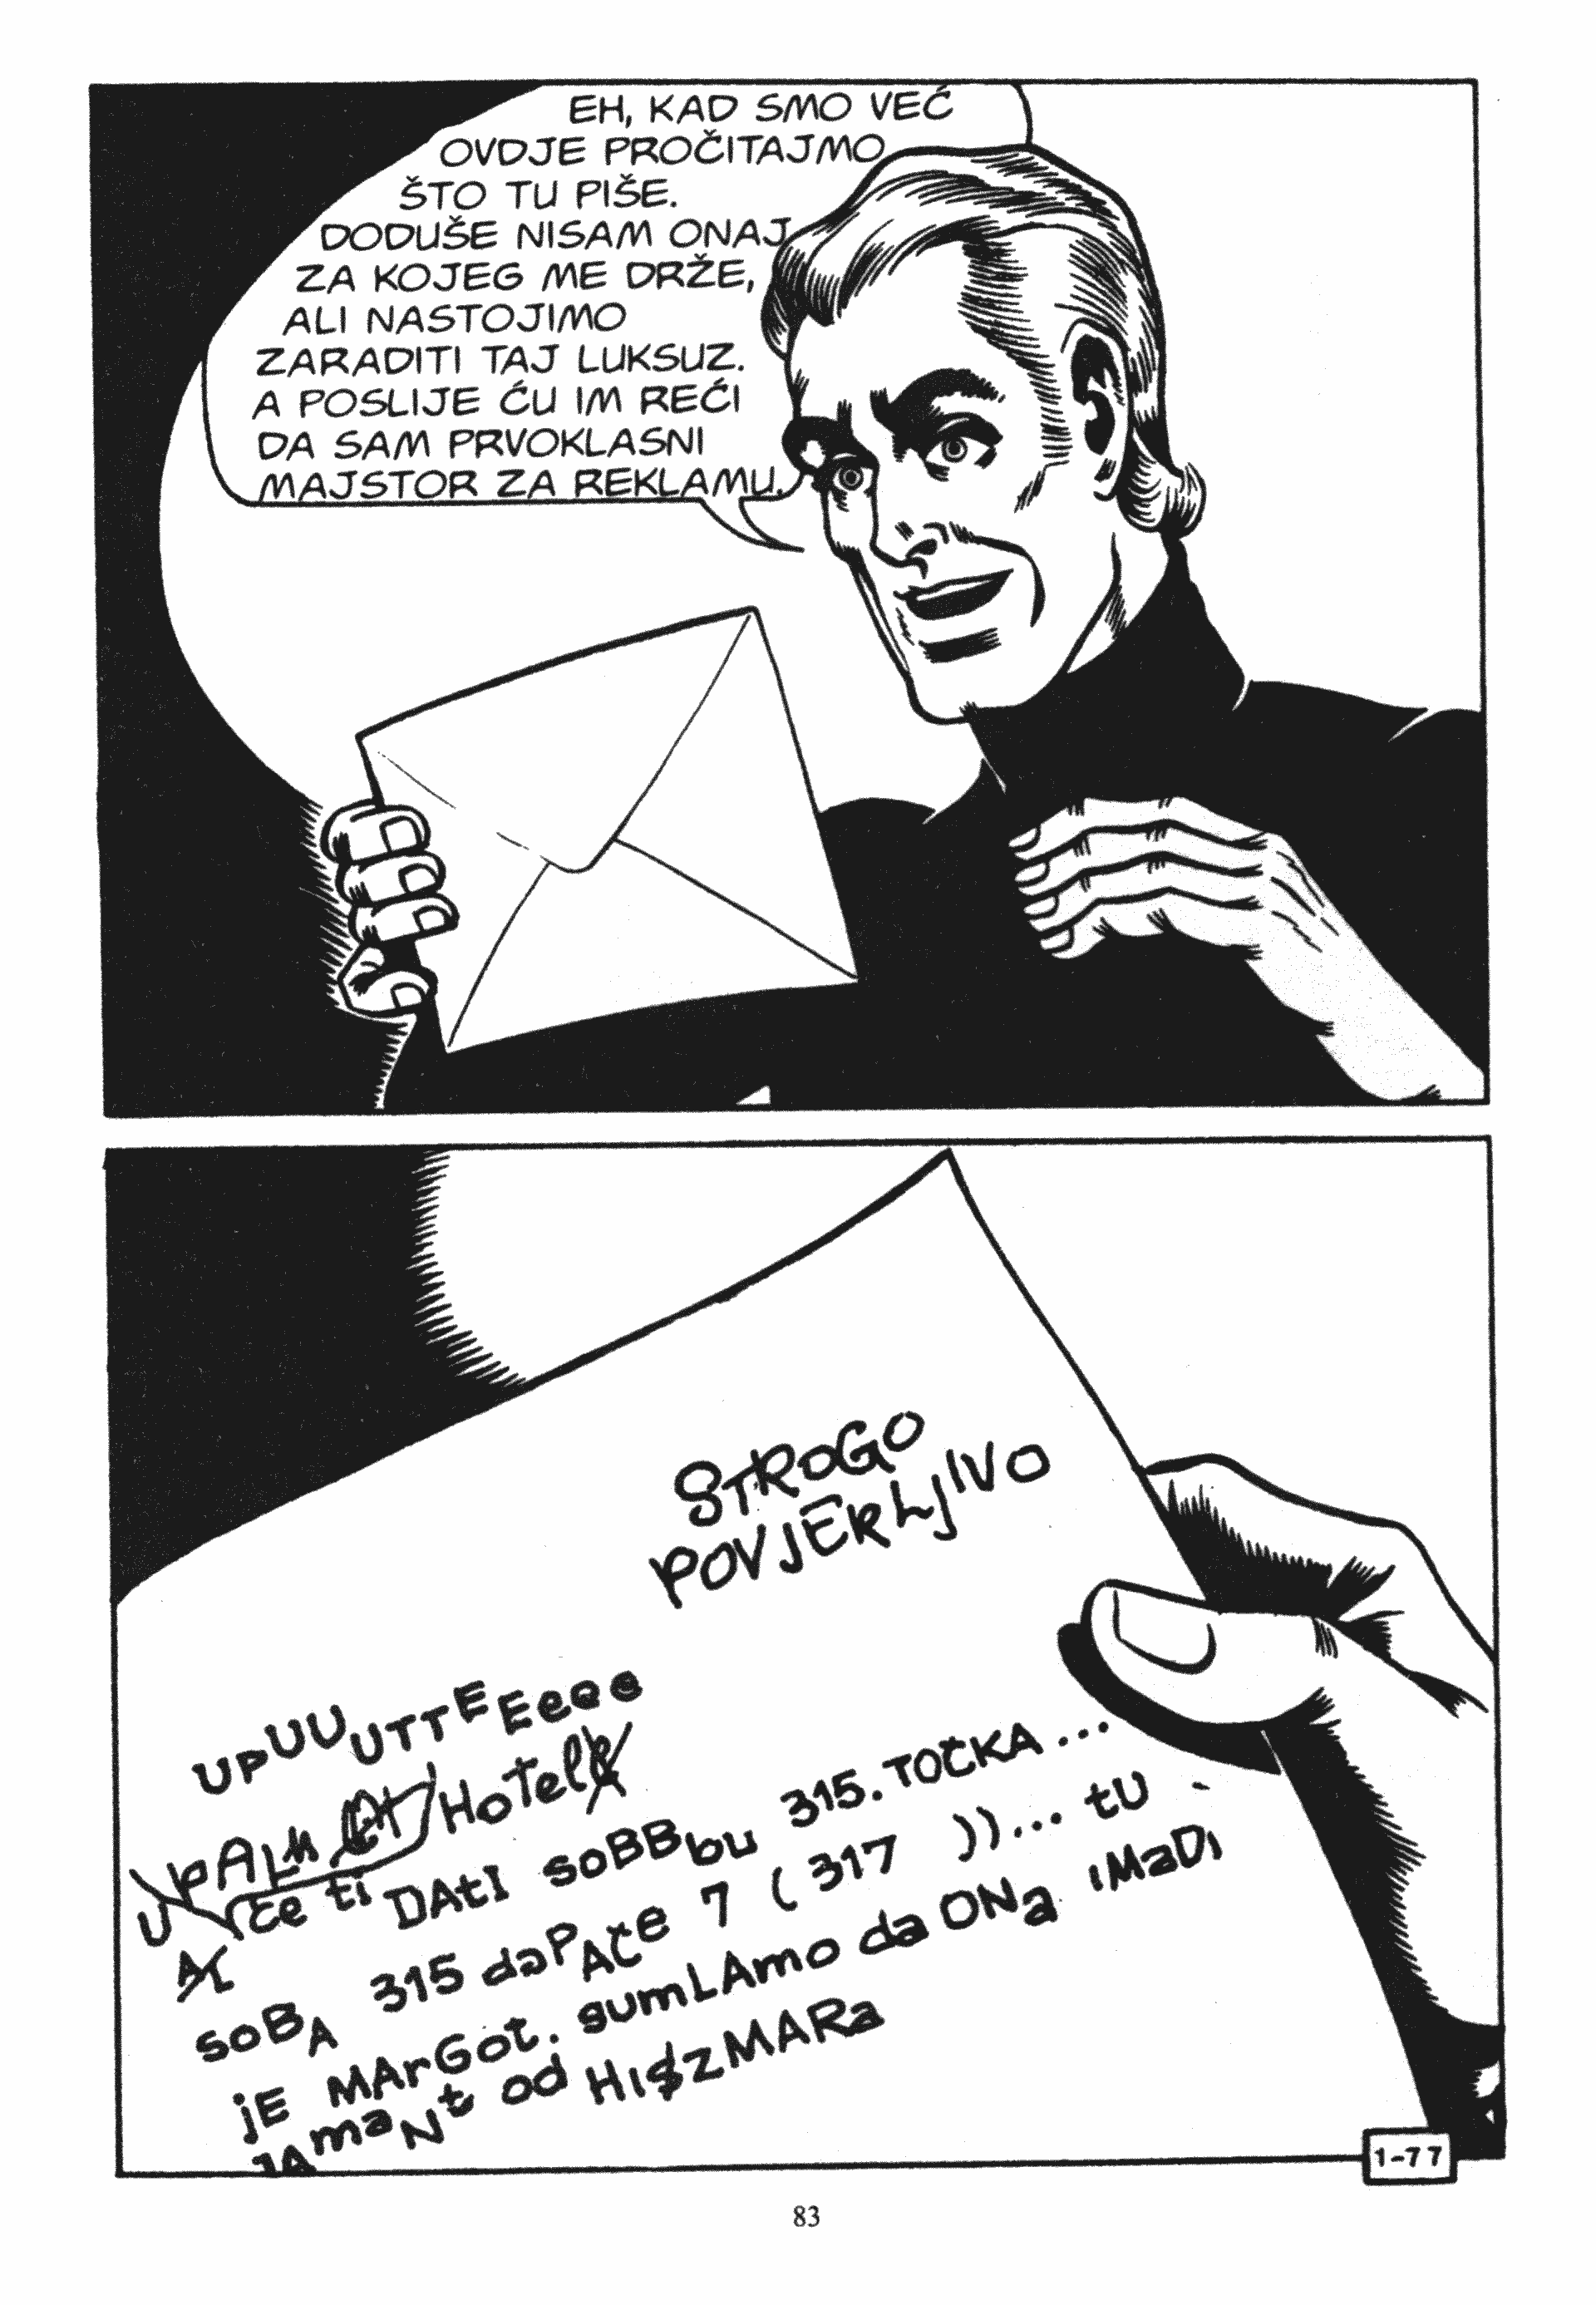 EH, KAD SMO VEĆ
OVDJE PROČITAJMO
ŠTO TU PIŠE.
DODUŠE NISAM ONAJ
ZA KOJEG ME DRŽE,
ALI NASTOJIMO
ZARADITI TAJ LUKSUZ.
A POSLIJE ĆU IM REĆI
DA SAM PRVOKLASNI
MAJSTOR ZA REKLAMU.
STROGO
POVJERLJIVO
UPUUUUTTEEeee
HoTel
U če ti DAtI soBBbu 315. TOČKA...
soBA 315 daPAče 7 (317 ))... tU -
jE MArGot. sumLAmo da ONa iMaDi
JAmaNt od HISZMARa
1-77
83